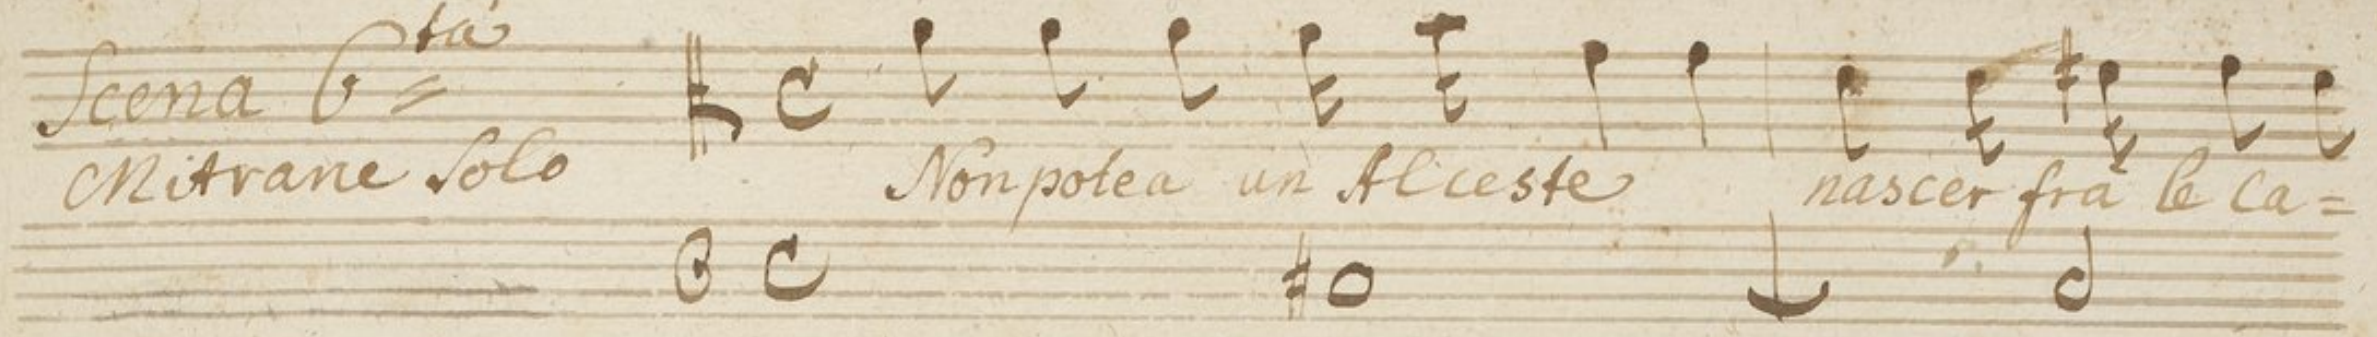 Scena 6ta =
Mitrane Solo Non potea un Alceste nascer frà le Ca=